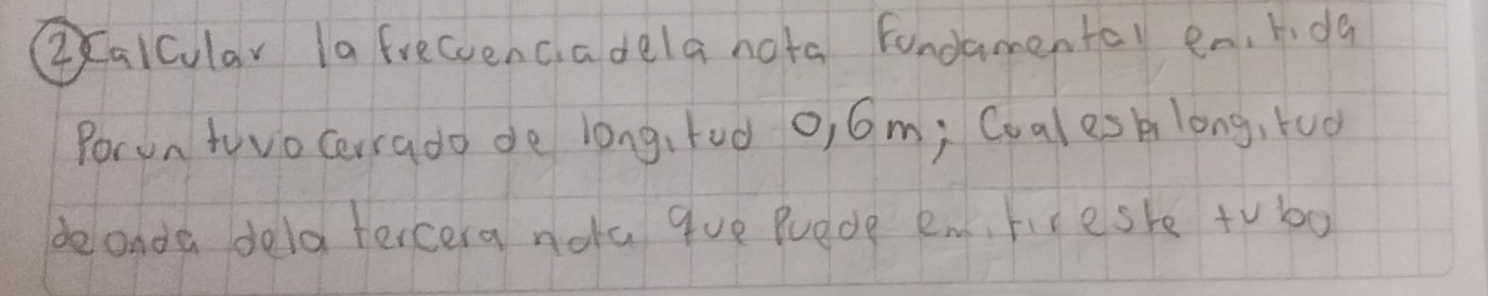 ② Calcular la frecuencia de la nota fundamental emitida
Por un tuvo cerrado de longitud 0,6m; Cual es la longitud
de onda de la tercera nota que Puede emitir este tubo